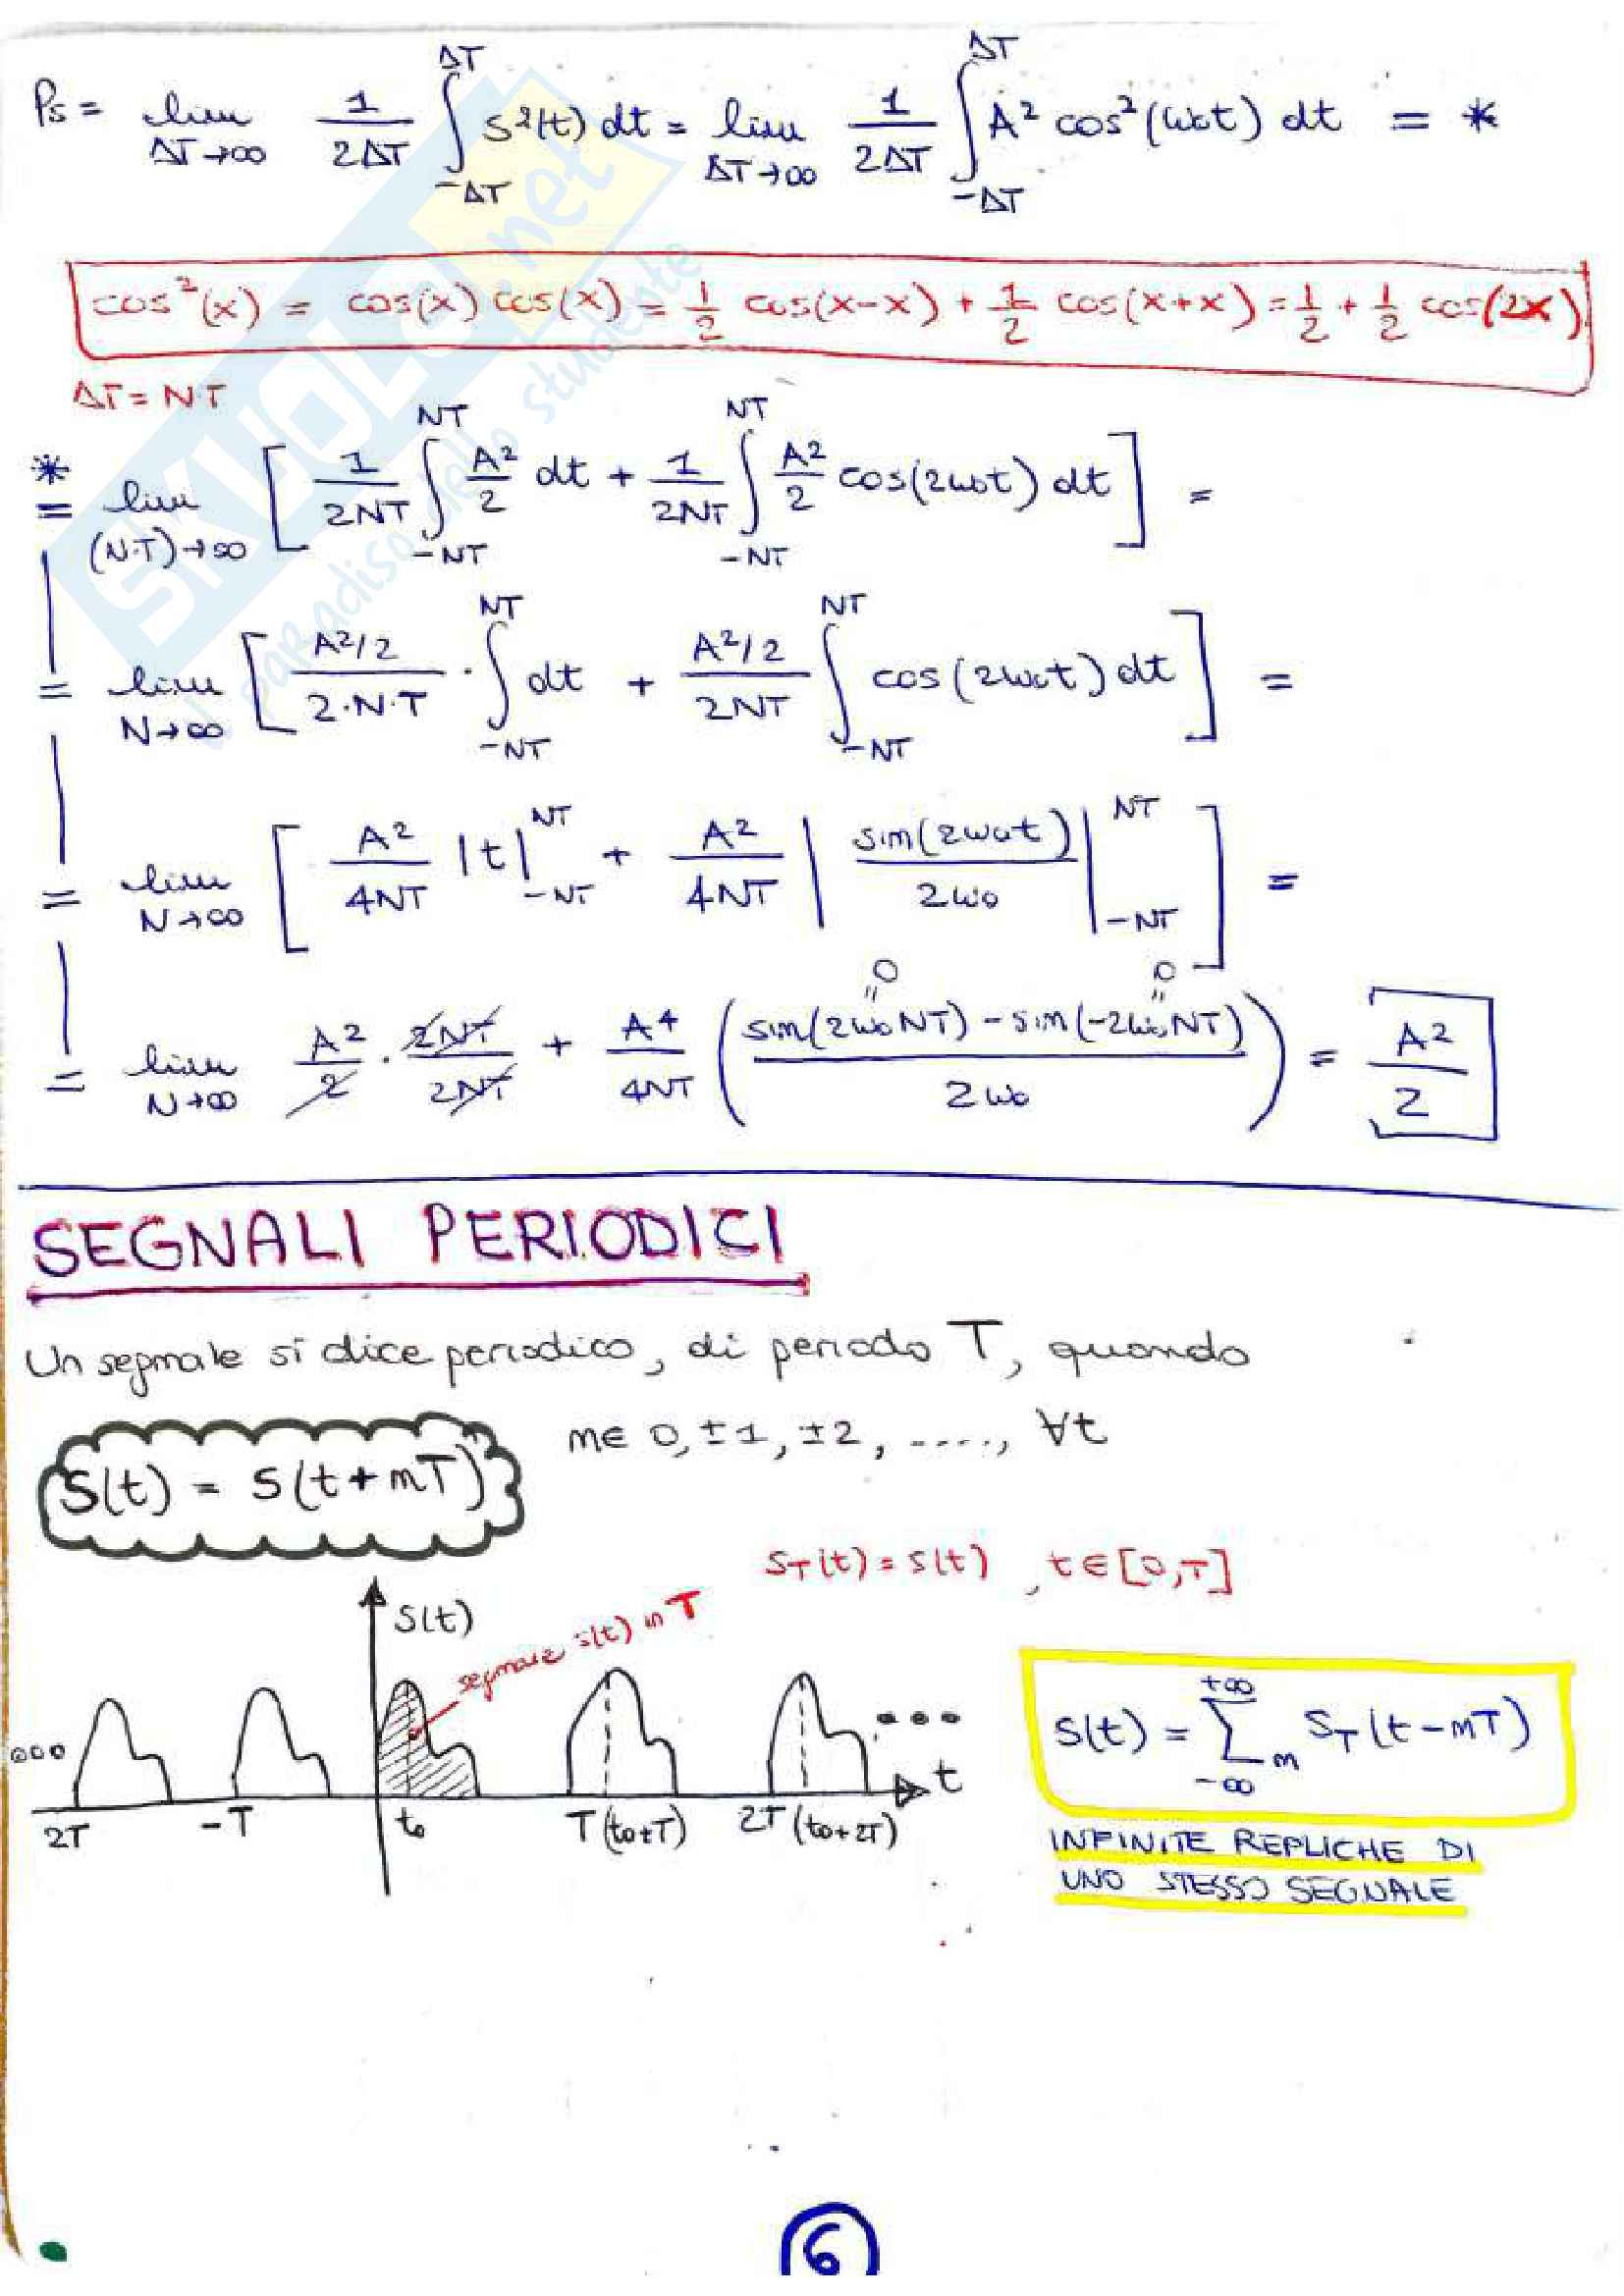 Ps = lim ΔT→∞ 1/2ΔT ∫_{-ΔT}^{ΔT} s²(t) dt = lim ΔT→∞ 1/2ΔT ∫_{-ΔT}^{ΔT} A² cos²(ω₀t) dt = *
cos²(x) = cos(x) cos(x) = 1/2 cos(x-x) + 1/2 cos(x+x) = 1/2 + 1/2 cos(2x)
ΔT = N·T
* = lim (N·T)→∞ [ 1/2NT ∫_{-NT}^{NT} A²/2 dt + 1/2NT ∫_{-NT}^{NT} A²/2 cos(2ω₀t) dt ] =
= lim N→∞ [ A²/2 / 2·N·T · ∫_{-NT}^{NT} dt + A²/2 / 2NT ∫_{-NT}^{NT} cos(2ω₀t) dt ] =
= lim N→∞ [ A²/4NT |t|_{-NT}^{NT} + A²/4NT | sin(2ω₀t) / 2ω₀ |_{-NT}^{NT} ] =
0 0
= lim N→∞ A²/2 · 2NT/2NT + A⁴/4NT ( sin(2ω₀NT) - sin(-2ω₀NT) / 2ω₀ ) = A²/2
SEGNALI PERIODICI
Un segnale si dice periodico, di periodo T, quando
S(t) = S(t+mT) m∈ 0, ±1, ±2, ...., ∀t
S_T(t) = s(t) , t∈[0,T]
S(t)
segnale s(t) in T
S(t) = Σ_{-∞}^{+∞} m S_T(t-mT)
t
2T -T t₀ T (t₀+T) 2T (t₀+2T)
INFINITE REPLICHE DI
UNO STESSO SEGNALE
6
SKUOLA.net
il paradiso dello studente